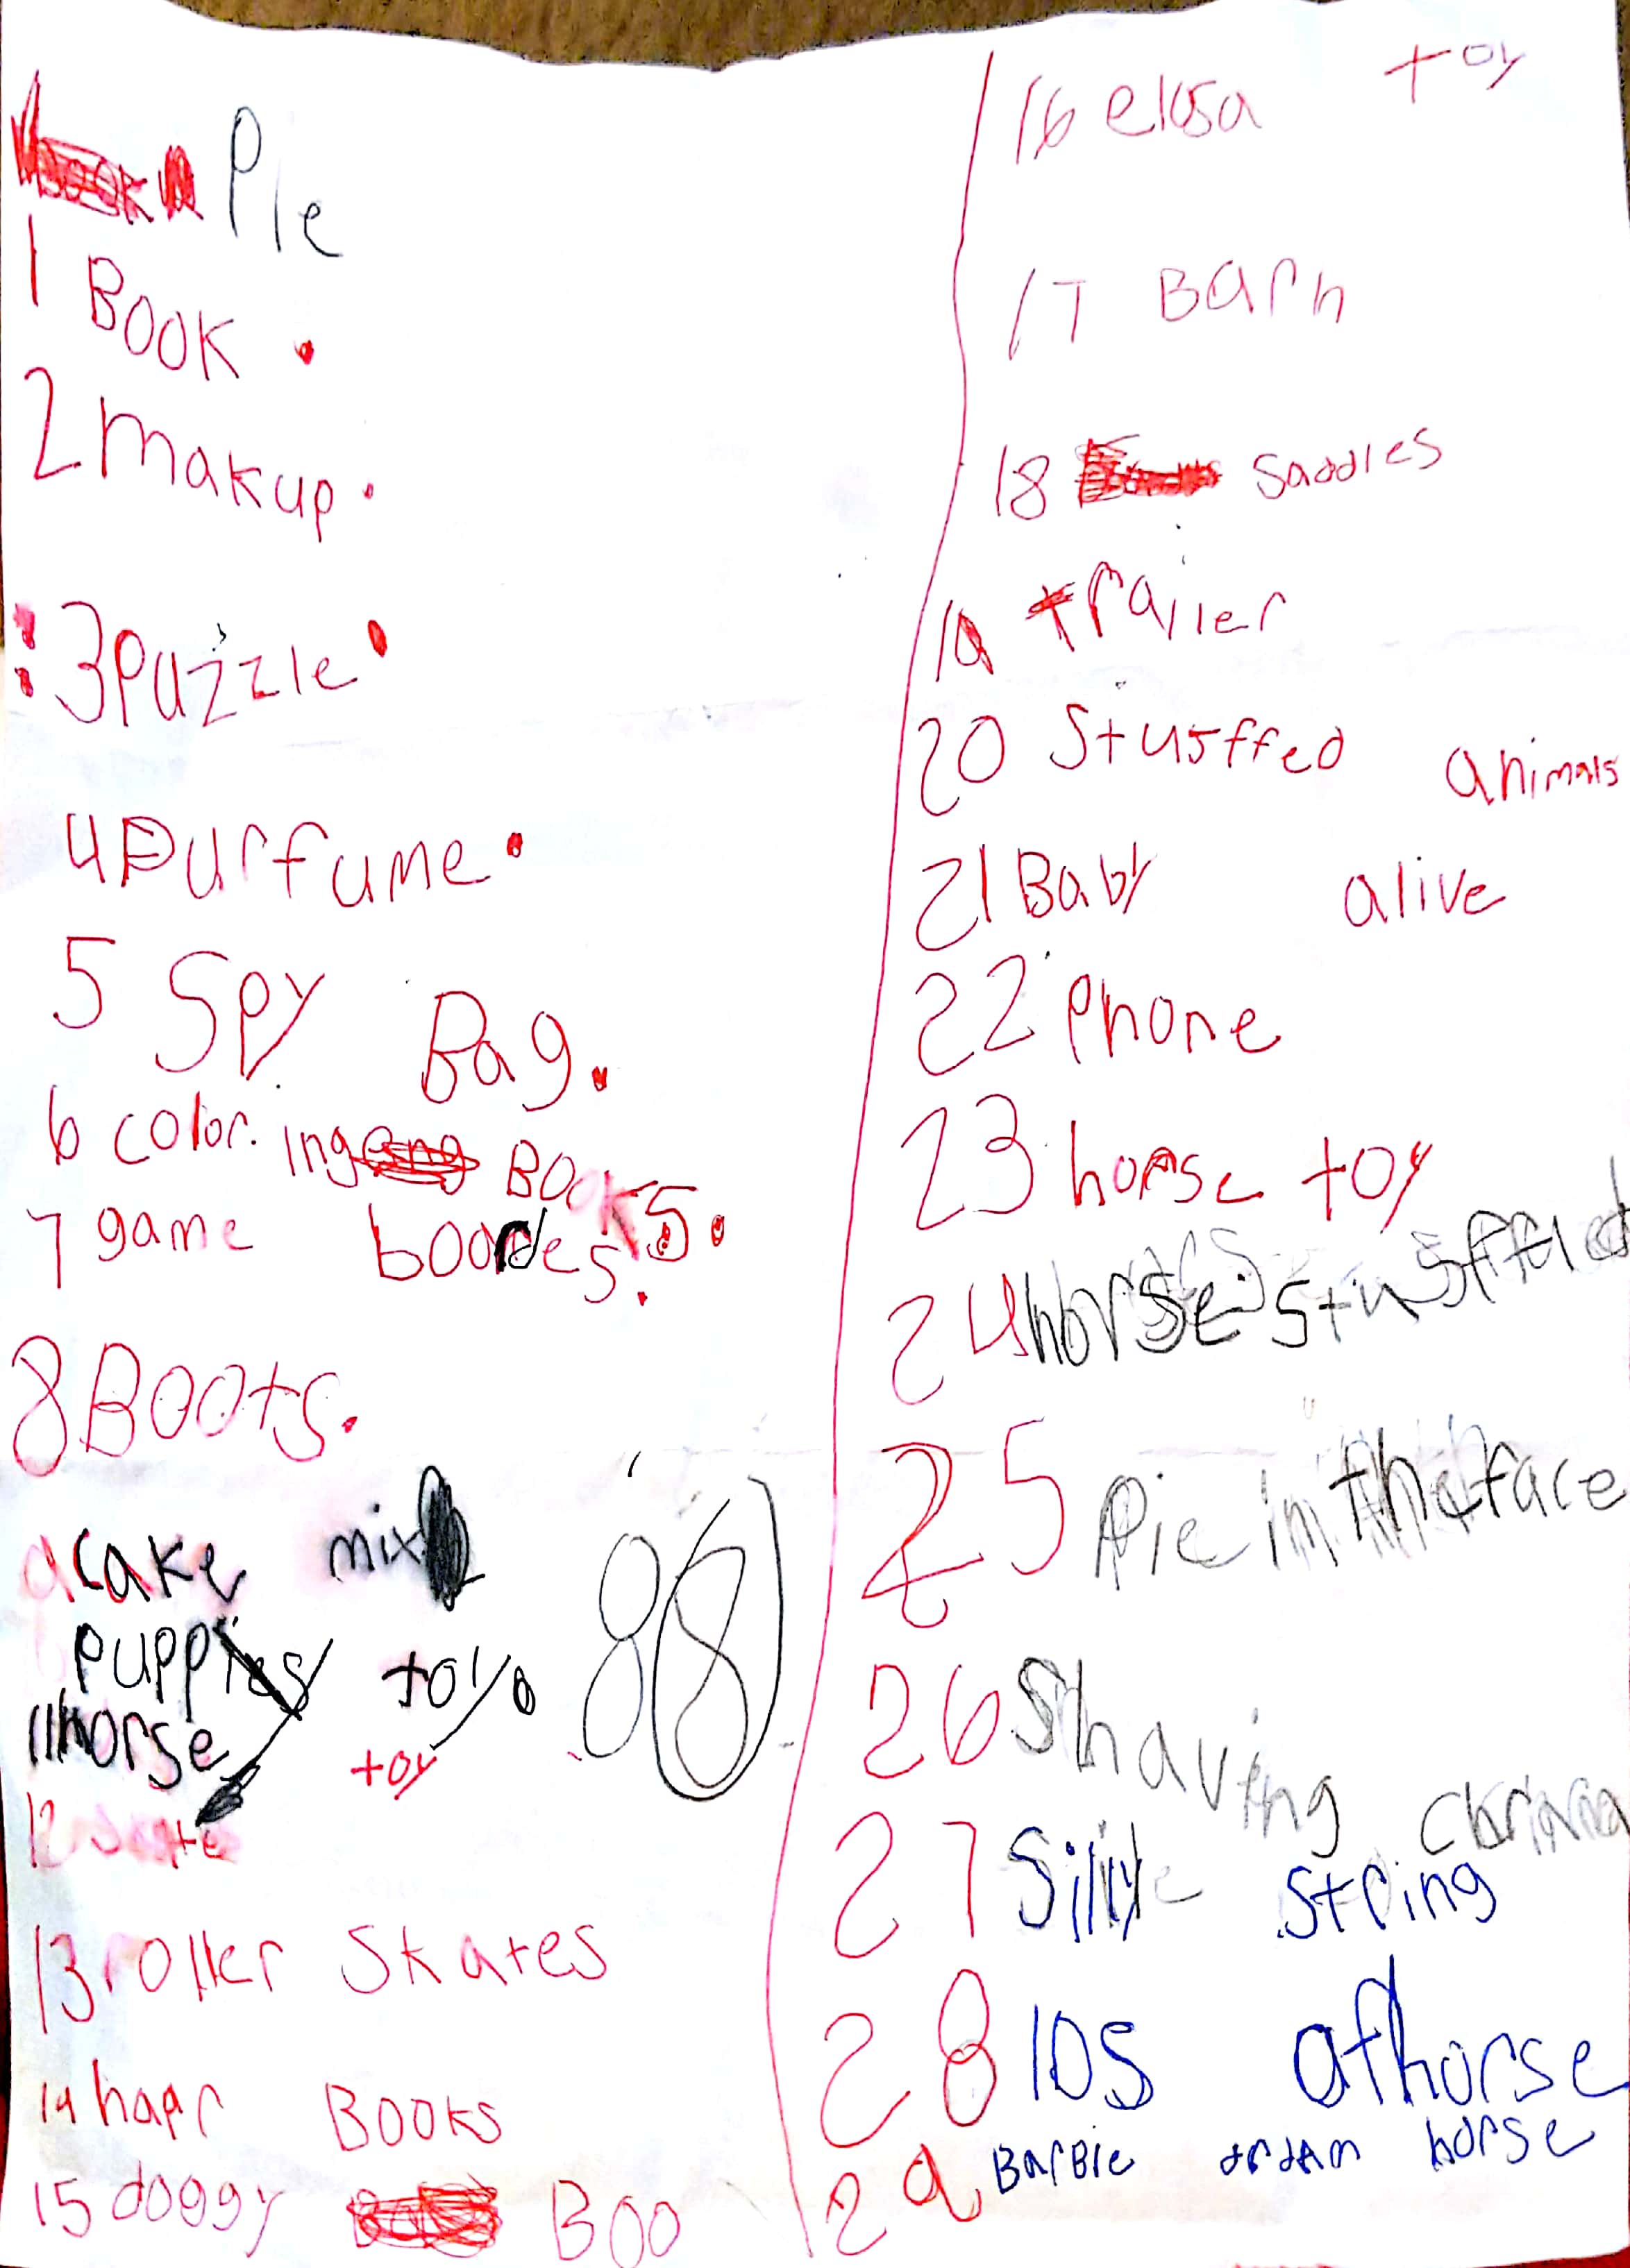 Pie
1 Book.
2 makup.
3 Puzzle.
4 Purfume.
5 Spy Bag.
6 color.ing Books.
7 game boordes.
8 Boots.
9 cake mix
puppies toy
11 horse toy
12 skate
13 roller skates
14 hapr Books
15 doggy Boo
88
16 elosa toy
17 Barn
18 saddles
19 trailer
20 stusffed animals
21 Baby alive
22 Phone
23 horse toy
24 horse stusffed
25 Pie in the face
26 Shaving
27 Silly string
28 lOs of horse
29 Barbie horse